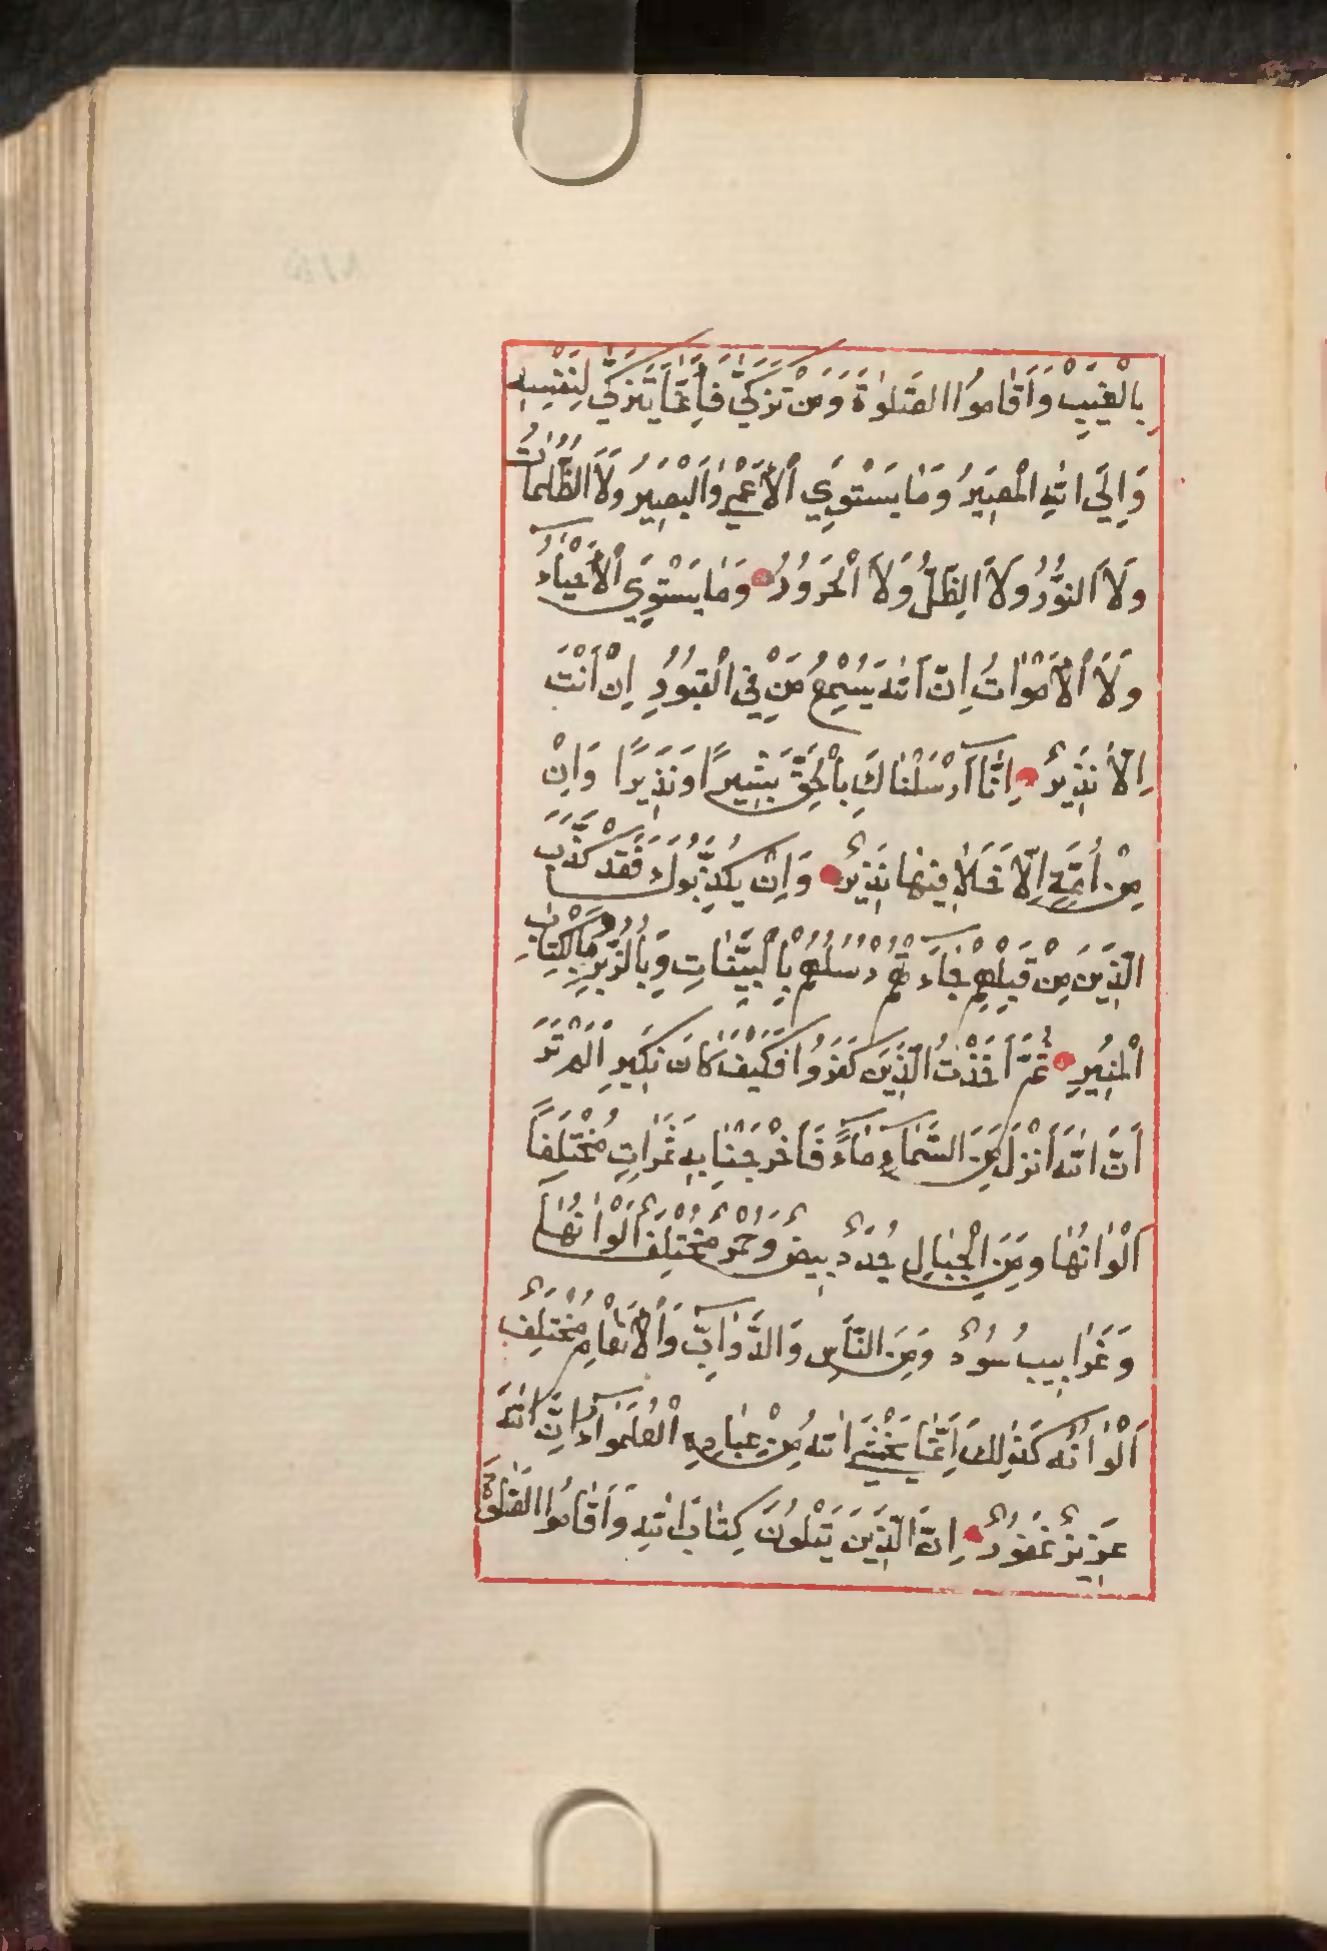 بِالْغَيْبِ وَاَقَامُوا الصَّلٰوةَ وَمَنْ تَزَكّٰي فَاِنَّمَا يَتَزَكّٰي لِنَفْسِهِ
وَاِلَي اللّٰهِ الْمَصِيرُ وَمَا يَسْتَوِي الْاَعْمٰي وَالْبَصِيرُ وَلَا الظُّلُمَاتُ
وَلَا النُّورُ وَلَا الظِّلُّ وَلَا الْحَرُورُ وَمَا يَسْتَوِي الْاَحْيَاءُ
وَلَا الْاَمْوَاتُ اِنَّ اللّٰهَ يُسْمِعُ مَنْ فِي الْقُبُورِ اِنْ اَنْتَ
اِلَّا نَذِيرٌ اِنَّا اَرْسَلْنَاكَ بِالْحَقِّ بَشِيرًا وَنَذِيرًا وَاِنْ
مِنْ اُمَّةٍ اِلَّا خَلَا فِيهَا نَذِيرٌ وَاِنْ يُكَذِّبُوكَ فَقَدْ كَذَّبَ
الَّذِينَ مِنْ قَبْلِهِمْ جَاءَتْهُمْ رُسُلُهُمْ بِالْبَيِّنَاتِ وَبِالزُّبُرِ وَبِالْكِتَابِ
الْمُنِيرِ ثُمَّ اَخَذْتُ الَّذِينَ كَفَرُوا فَكَيْفَ كَانَ نَكِيرِ اَلَمْ تَرَ
اَنَّ اللّٰهَ اَنْزَلَ مِنَ السَّمَاءِ مَاءً فَاَخْرَجْنَا بِهِ ثَمَرَاتٍ مُخْتَلِفًا
اَلْوَانُهَا وَمِنَ الْجِبَالِ جُدَدٌ بِيضٌ وَحُمْرٌ مُخْتَلِفٌ اَلْوَانُهَا
وَغَرَابِيبُ سُودٌ وَمِنَ النَّاسِ وَالدَّوَابِّ وَالْاَنْعَامِ مُخْتَلِفٌ
اَلْوَانُهُ كَذٰلِكَ اِنَّمَا يَخْشَي اللّٰهَ مِنْ عِبَادِهِ الْعُلَمٰوءُا اِنَّ اللّٰهَ
عَزِيزٌ غَفُورٌ اِنَّ الَّذِينَ يَتْلُونَ كِتَابَ اللّٰهِ وَاَقَامُوا الصَّلٰوةَ